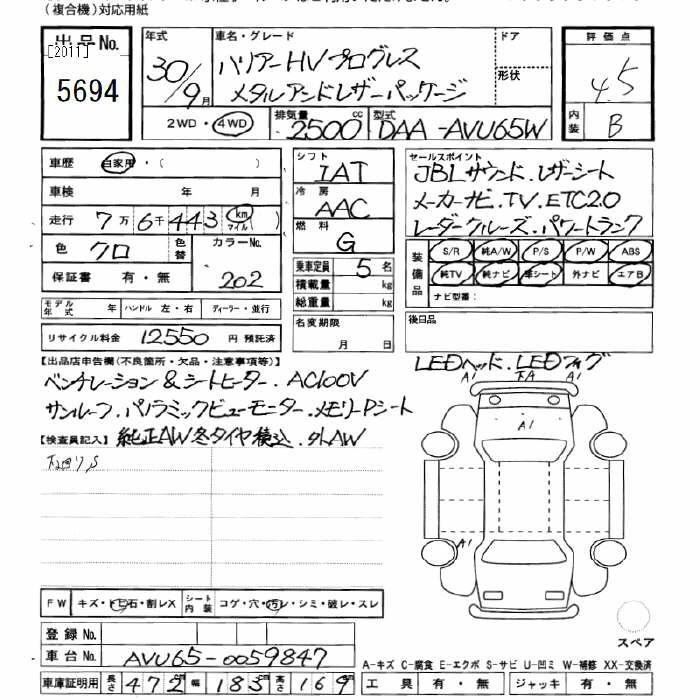 （複合機）対応用紙
出品No.
[2011]
5694
年式
30/9月
車名・グレード
ハリアーHVプログレス
メタルアンドレザーパッケージ
ドア
形状
評価点
4.5
内装
B
2WD・4WD
排気量
2500cc
型式
DAA-AVU65W
車歴 自家用・（ ）
車検 年 月
走行 7万6千443 km マイル
色 クロ 色替 カラーNo. 202
保証書 有・無
シフト
IAT
冷房
AAC
燃料
G
乗車定員 5名
積載量 kg
総重量 kg
セールスポイント
JBLサウンド.レザーシート
メーカーナビ.TV.ETC2.0
レーダークルーズ.パワートランク
装備品
S/R 純A/W P/S P/W ABS
純TV 純ナビ 革シート 外ナビ エアB
ナビ型番：
モデル年式 年 ハンドル 左・右 ディーラー・並行
リサイクル料金 12550 円 預託済
名変期限
月 日
後日品
【出品店申告欄(不良箇所・欠品・注意事項等)】
LEDヘッド.LEDフォグ
ベンチレーション&シートヒーター.AC100V
サンルーフ.パノラミックビューモニター.メモリーPシート
【検査員記入】 純正AW冬タイヤ積込.外AW
A1 A1
A1
A1
FW キズ・トビ石・割レX シート内装 コゲ・穴・汚レ・シミ・破レ・スレ
登録No.
車台No. AVU65-0059847
車庫証明用 長さ 472cm 幅 183cm 高さ 169cm
スペア
A-キズ C-腐食 E-エクボ S-サビ U-凹ミ W-補修 XX-交換済
工具 有・無 ジャッキ 有・無